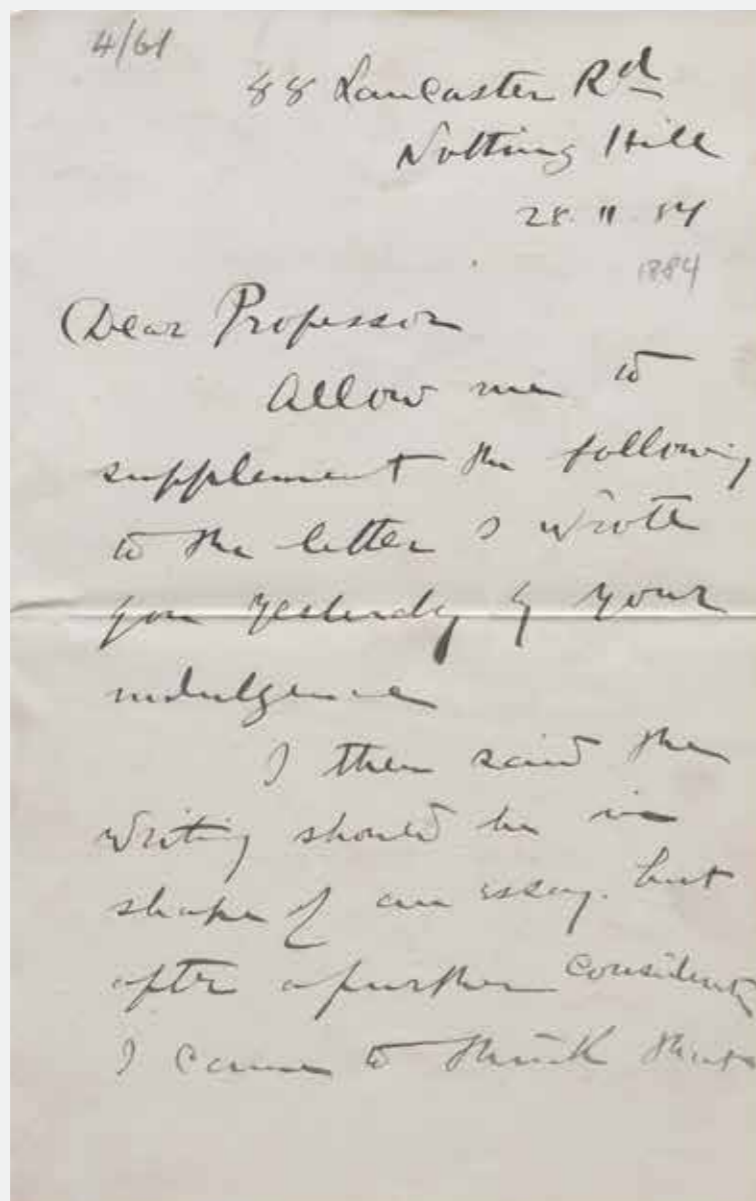 4/61
88 Lancaster Rd
Notting Hill
28. 11. 84
1884
Dear Professor
Allow me to
supplement the following
to the letter I wrote
you yesterday by your
indulgence
I then said the
writing should be in
shape of an essay. but
after a further
I came to think that